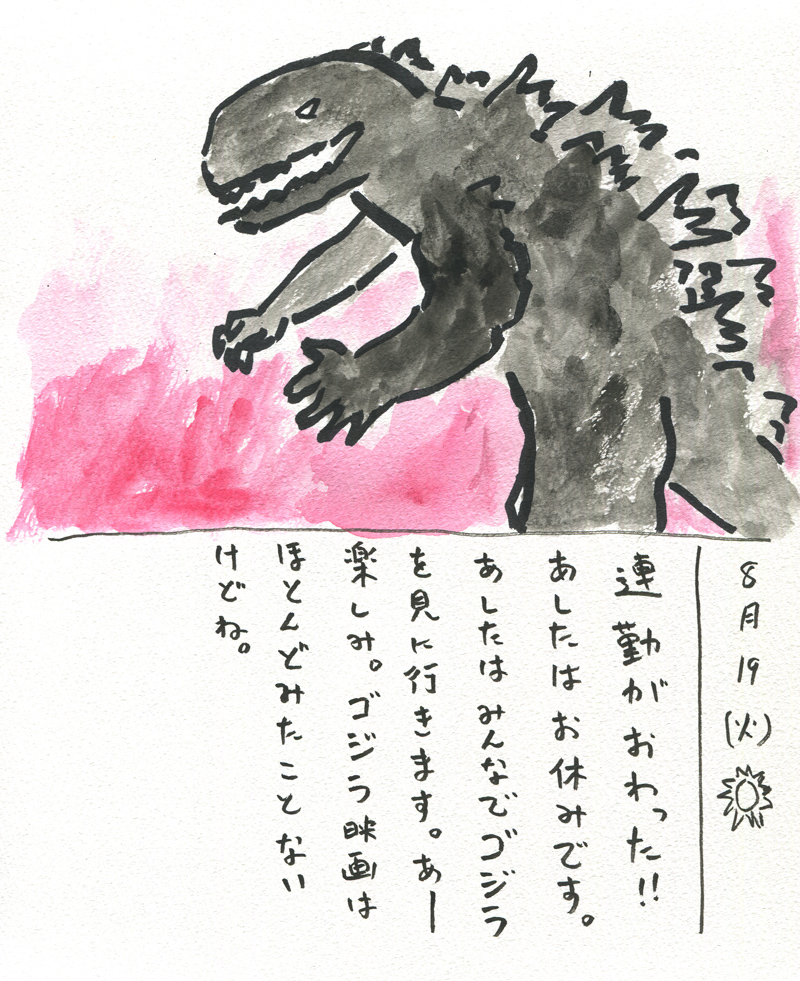 8月19(火)
連勤がおわった!!
あしたはお休みです。
あしたはみんなでゴジラ
を見に行きます。あー
楽しみ。ゴジラ映画は
ほとんどみたことない
けどね。